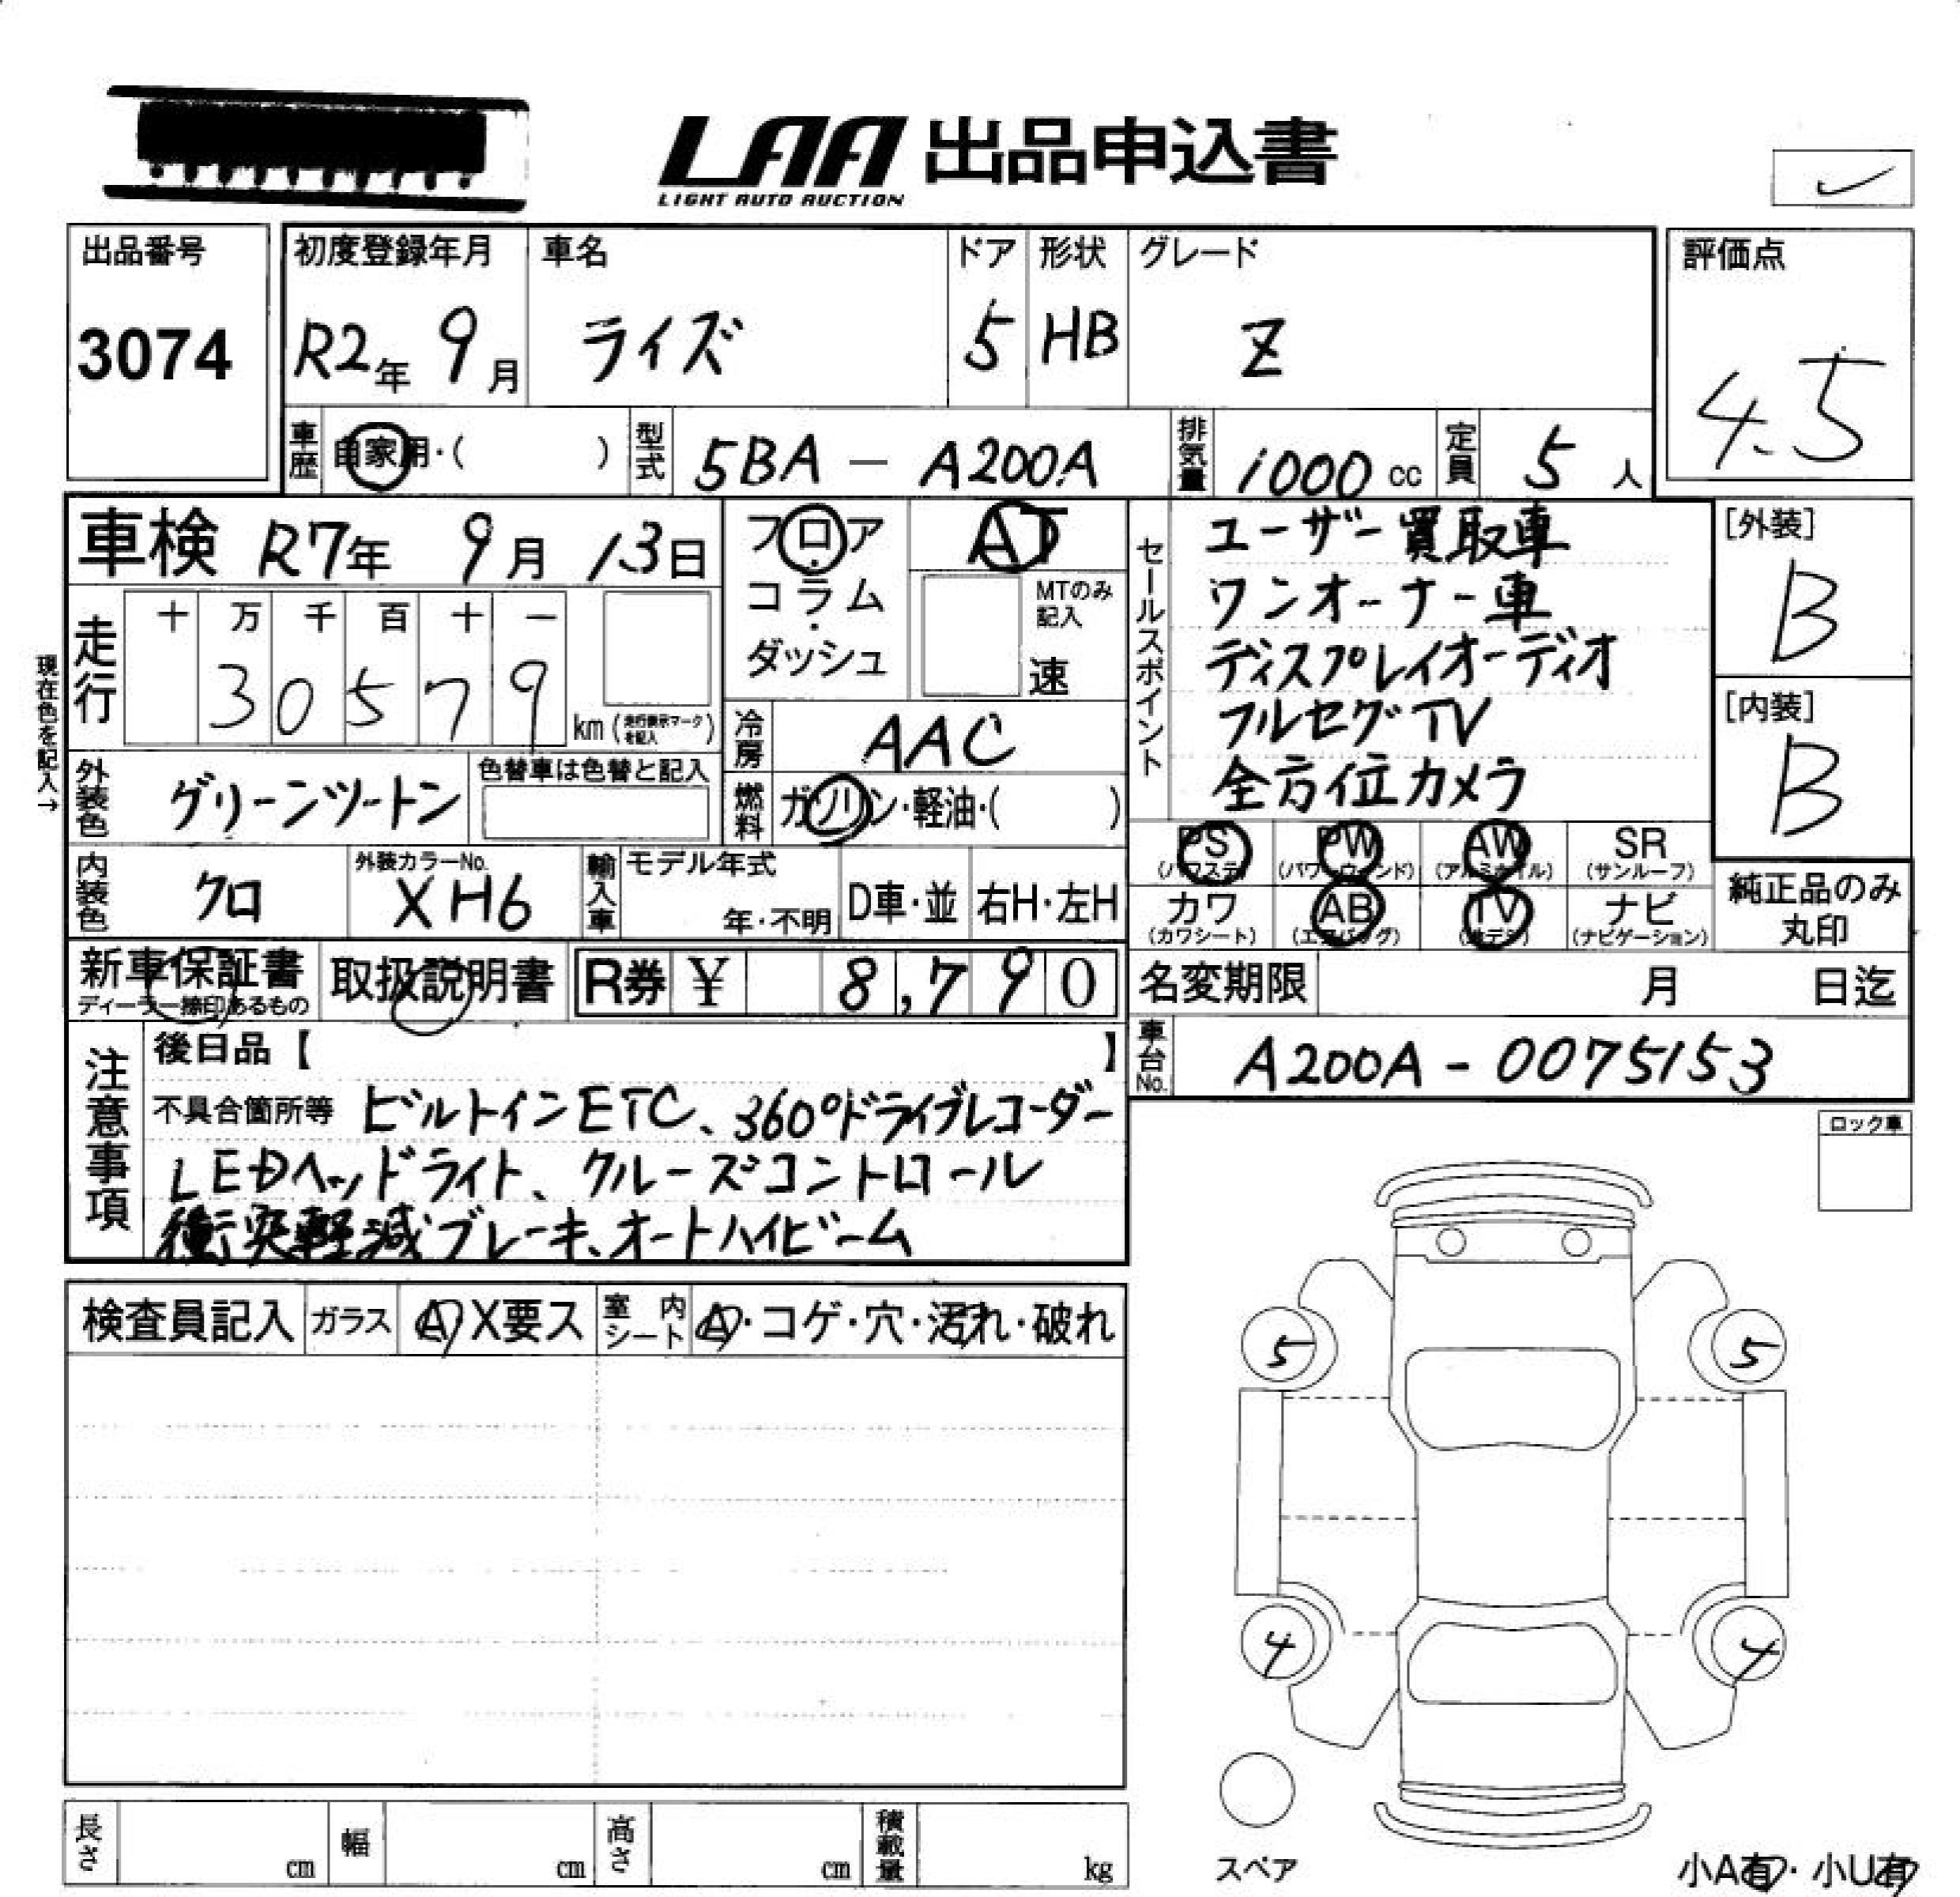 LAA 出品申込書
LIGHT AUTO AUCTION
出品番号
3074
初度登録年月
R2年 9月
車名
ライズ
ドア
5
形状
HB
グレード
Z
評価点
4.5
車歴
自家用・( )
型式
5BA - A200A
排気量
1000 cc
定員
5 人
車検 R7年 9月 13日
走行
十 万 千 百 十 一
3 0 5 7 9
km (走行表示マークを記入)
現在色を記入→
フロア
・
コラム
・
ダッシュ
AT
MTのみ
記入
速
冷房
AAC
燃料
ガソリン・軽油・( )
外装色
グリーンツートン
色替車は色替と記入
内装色
クロ
外装カラーNo.
XH6
輸入車
モデル年式
年・不明
D車・並
右H・左H
セールスポイント
ユーザー買取車
ワンオーナー車
ディスプレイオーディオ
フルセグTV
全方位カメラ
[外装]
B
[内装]
B
PS
(パワステ)
PW
(パワーウィンド)
AW
(アルミホイル)
SR
(サンルーフ)
カワ
(カワシート)
AB
(エアバッグ)
TV
(地デジ)
ナビ
(ナビゲーション)
純正品のみ
丸印
新車保証書
ディーラー捺印あるもの
取扱説明書
R券 ¥ 8,790
名変期限
月 日迄
車台No.
A200A - 0075153
注意事項
後日品【 】
不具合箇所等 ビルトインETC、360°ドライブレコーダー
LEDヘッドライト、クルーズコントロール
衝突軽減ブレーキ、オートハイビーム
ロック車
検査員記入
ガラス
A X要ス
室内シート
A・コゲ・穴・汚れ・破れ
5
5
4
4
スペア
長さ
cm
幅
cm
高さ
cm
積載量
kg
小A有・小U有